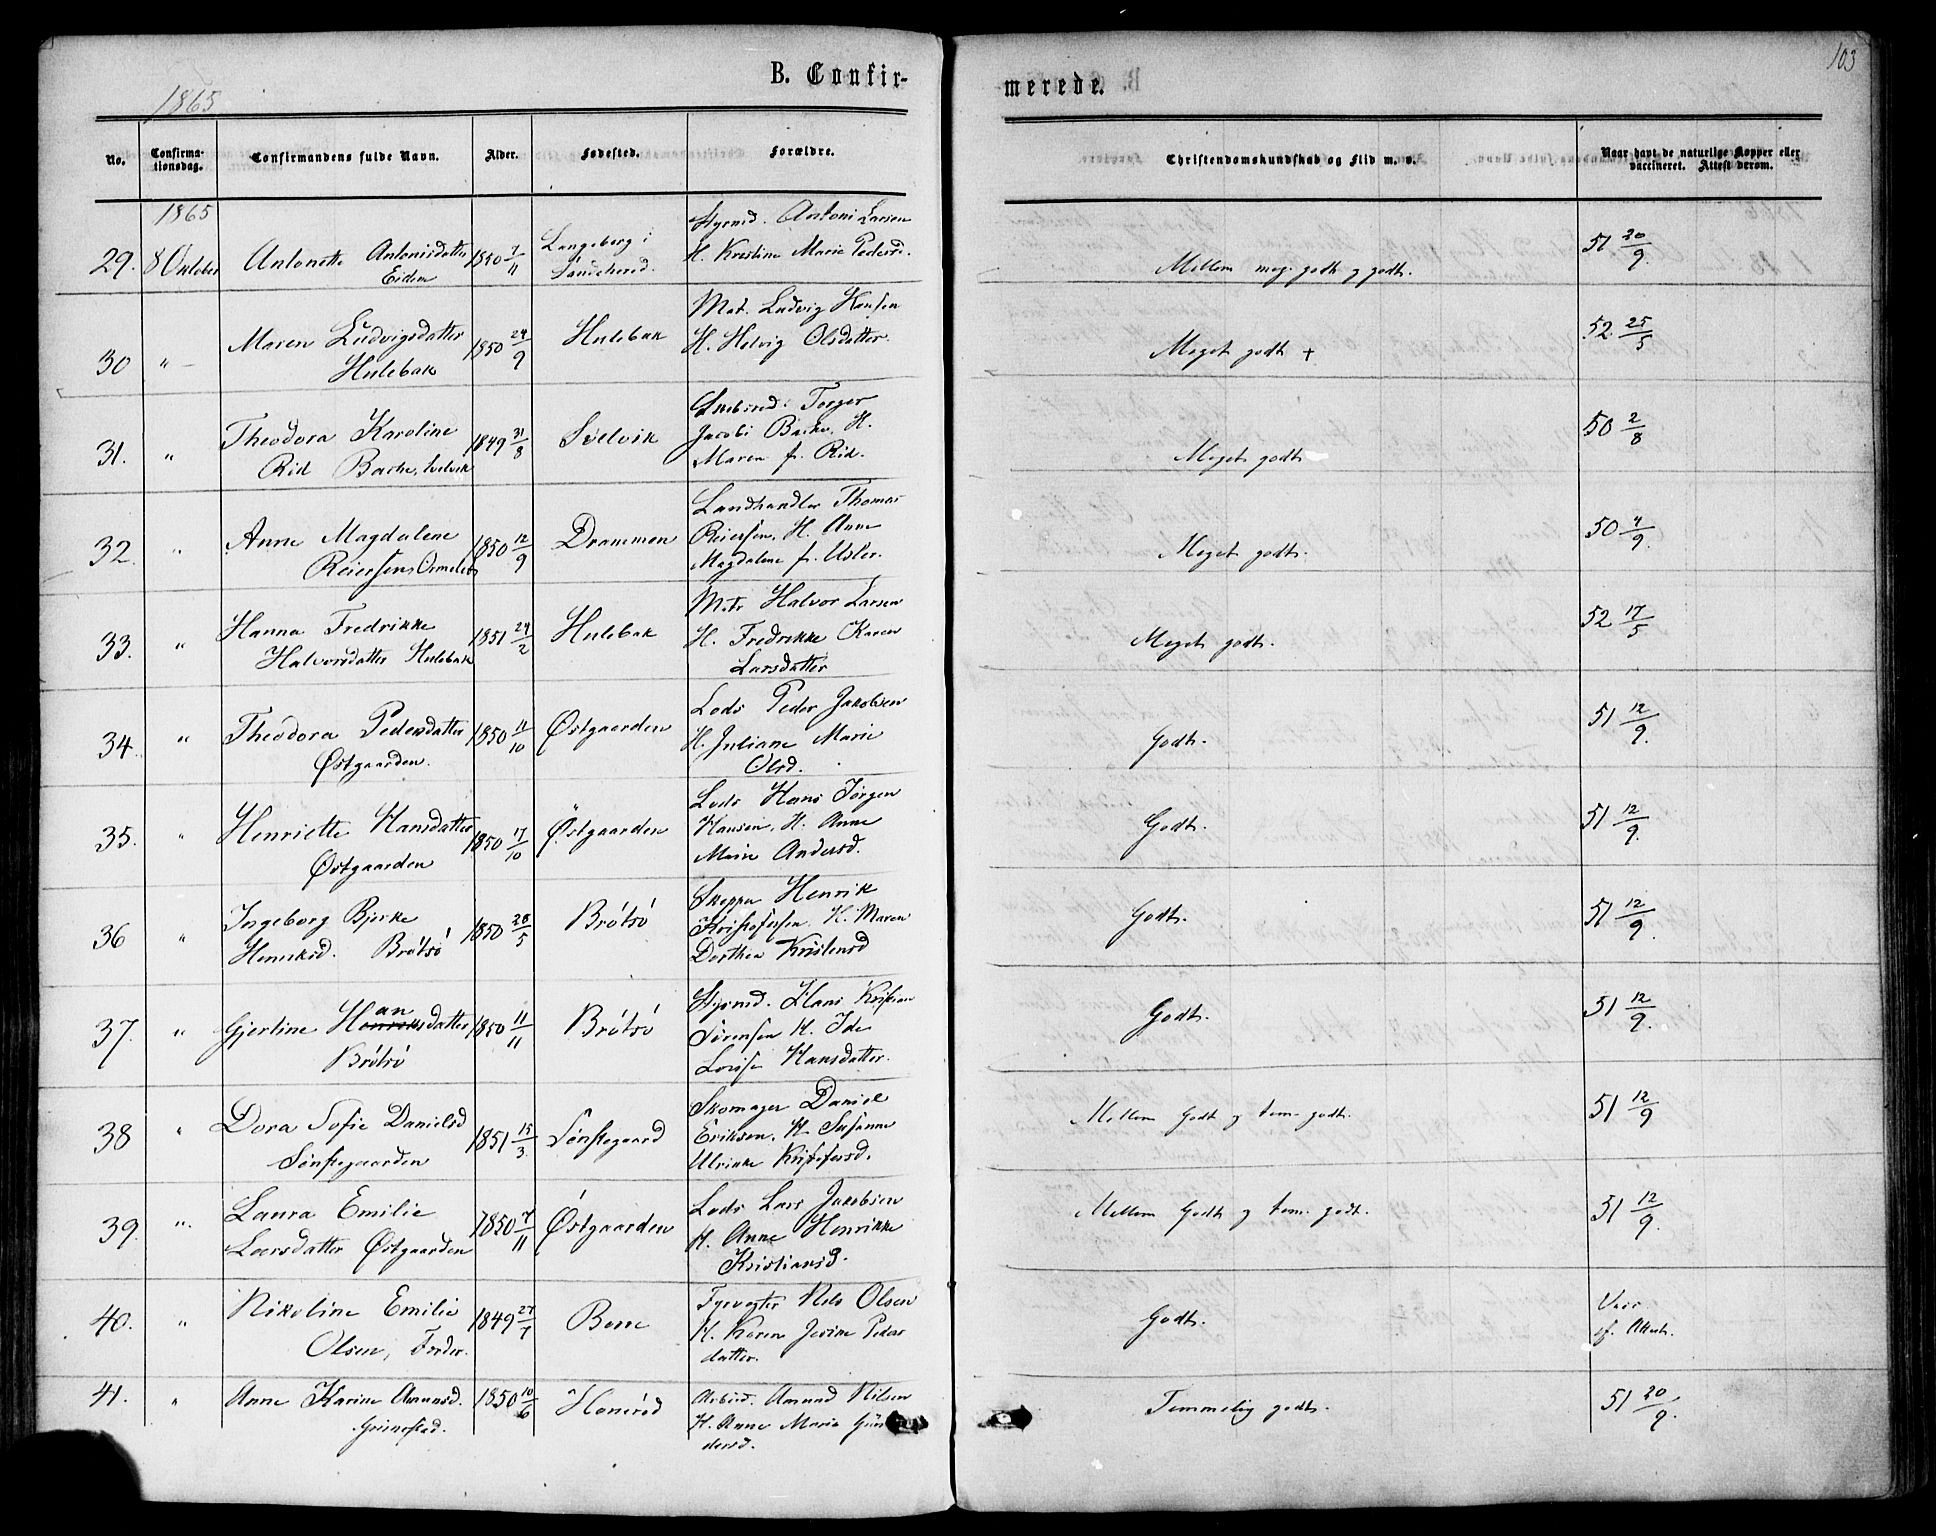 103
1865
B. Confir-
merede.
No.
Confirma-
tionsdag.
Confirmandens fulde Navn.
Alder.
Fødested.
Forældre.
Christendomskundskab og Flid m. v.
Naar havt de naturlige Kopper eller
vaccineret. Attest derom.
1865
29. 8 Oktober Antonette Antonisdatter
Eidan
1850 7/11
Langeberg i
Sandeherred.
Styrmd. Antoni Larsen
H. Kristine Marie Pedersd.
Mellem meg. godt og godt.
51 20/9.
30 " Maren Ludvigsdatter
Hulebak
1850 24/9
Hulebak
Mat. Ludvig Hansen
H. Helvig Olsdatter.
Meget godt +
52. 25/5
31. " Theodora Karoline
Rid Bache, Svelvik
1849 31/8
Svelvik
Torger
Jacobi Bache, H.
Maren f. Rid.
Meget godt
50 2/8
32. " Anne Magdalene
Reiersen,
1850 12/9
Drammen
Landhandler Thomas
Reiersen, H. Anne
Magdalene f.
Meget godt.
50 4/9.
33. " Hanna Fredrikke
Halvorsdatter Hulebak
1851 24/2
Hulebak
Matr Halvor Larsen
H. Fredrikke Karen
Larsdatter
Meget godt.
52 17/5
34. " Theodora Pedersdatter
Østgaarden.
1850 11/10
Østgaarden
Lods Peder Jakobsen
H. Juliane Marie
Olsd.
Godt.
51 12/9.
35. " Henriette Hansdatter
Østgaarden
1850 17/10
Østgaarden
Lods Hans Jørgen
Hansen, H. Anne
Marie Andersd.
Godt.
51 12/9.
36 " Ingeborg Bjerke
Henriksd. Brøtsø
1850 28/5
Brøtsø
Skipper Henrik
Kristofersen. H. Maren
Dorthea Kristensd
Godt.
51 12/9.
37. " Gjertine Hansdatter
Brøtsø
1850 11/11
Brøtsø
Styrmd. Hans Kristian
Sørensen H. Ide
Lovise Hansdatter.
Godt.
51 12/9.
38 " Dora Sofie Danielsd
Sønstegaarden
1851 15/3.
Sønstegaard
Skomager Daniel
Eriksen. H. Susanne
Ulrikke Kristofersd.
Mellem Godt og tem. godt.
51 12/9
39. " Laura Emilie
Larsdatter Østgaarden
1850 7/11
Østgaarden
Lods Lars Jakobsen
H. Anne Henrikke
Kristiansd.
Mellem Godt og tem. godt.
51 12/9.
40. " Nikoline Emilie
Olsen, Feder.
1849 27/7
Borre
Fyrvogter Nils Olsen
H. Karen Jevine Peders
datter.
Godt.
Vacc
ef. Attest.
41. " Anne Karine Amunsd.
Grimestad.
1850 10/6
Hanerød
Arbeid. Amund Nilsen
H. Anne Maria Gun
dersd.
Temmelig godt.
51 20/9.